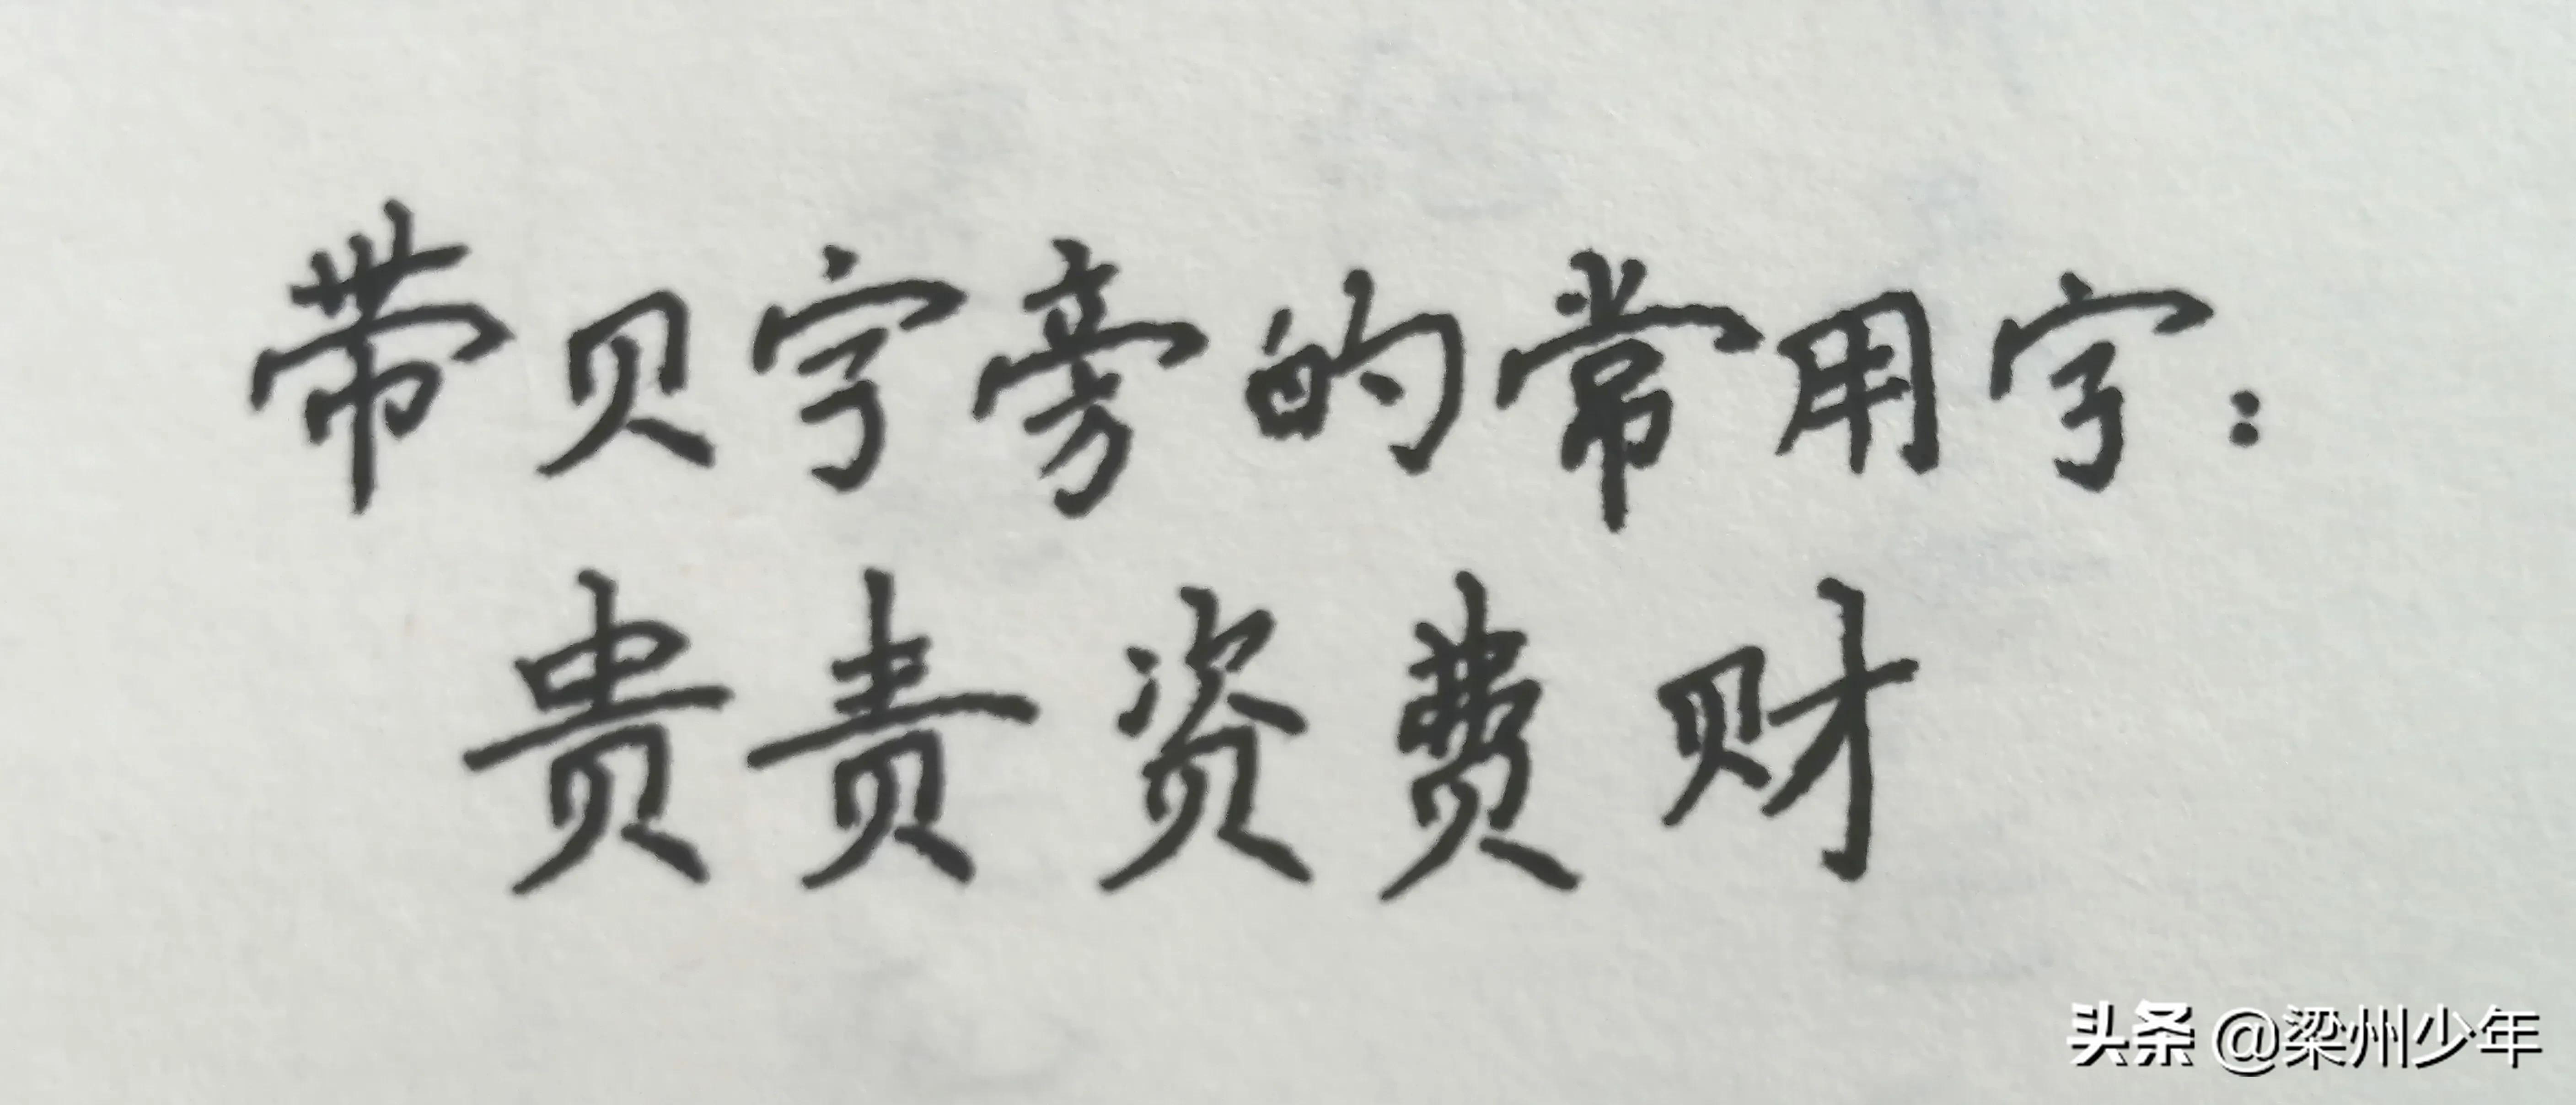 带贝字旁的常用字：
贵责资费财
头条 @梁州少年